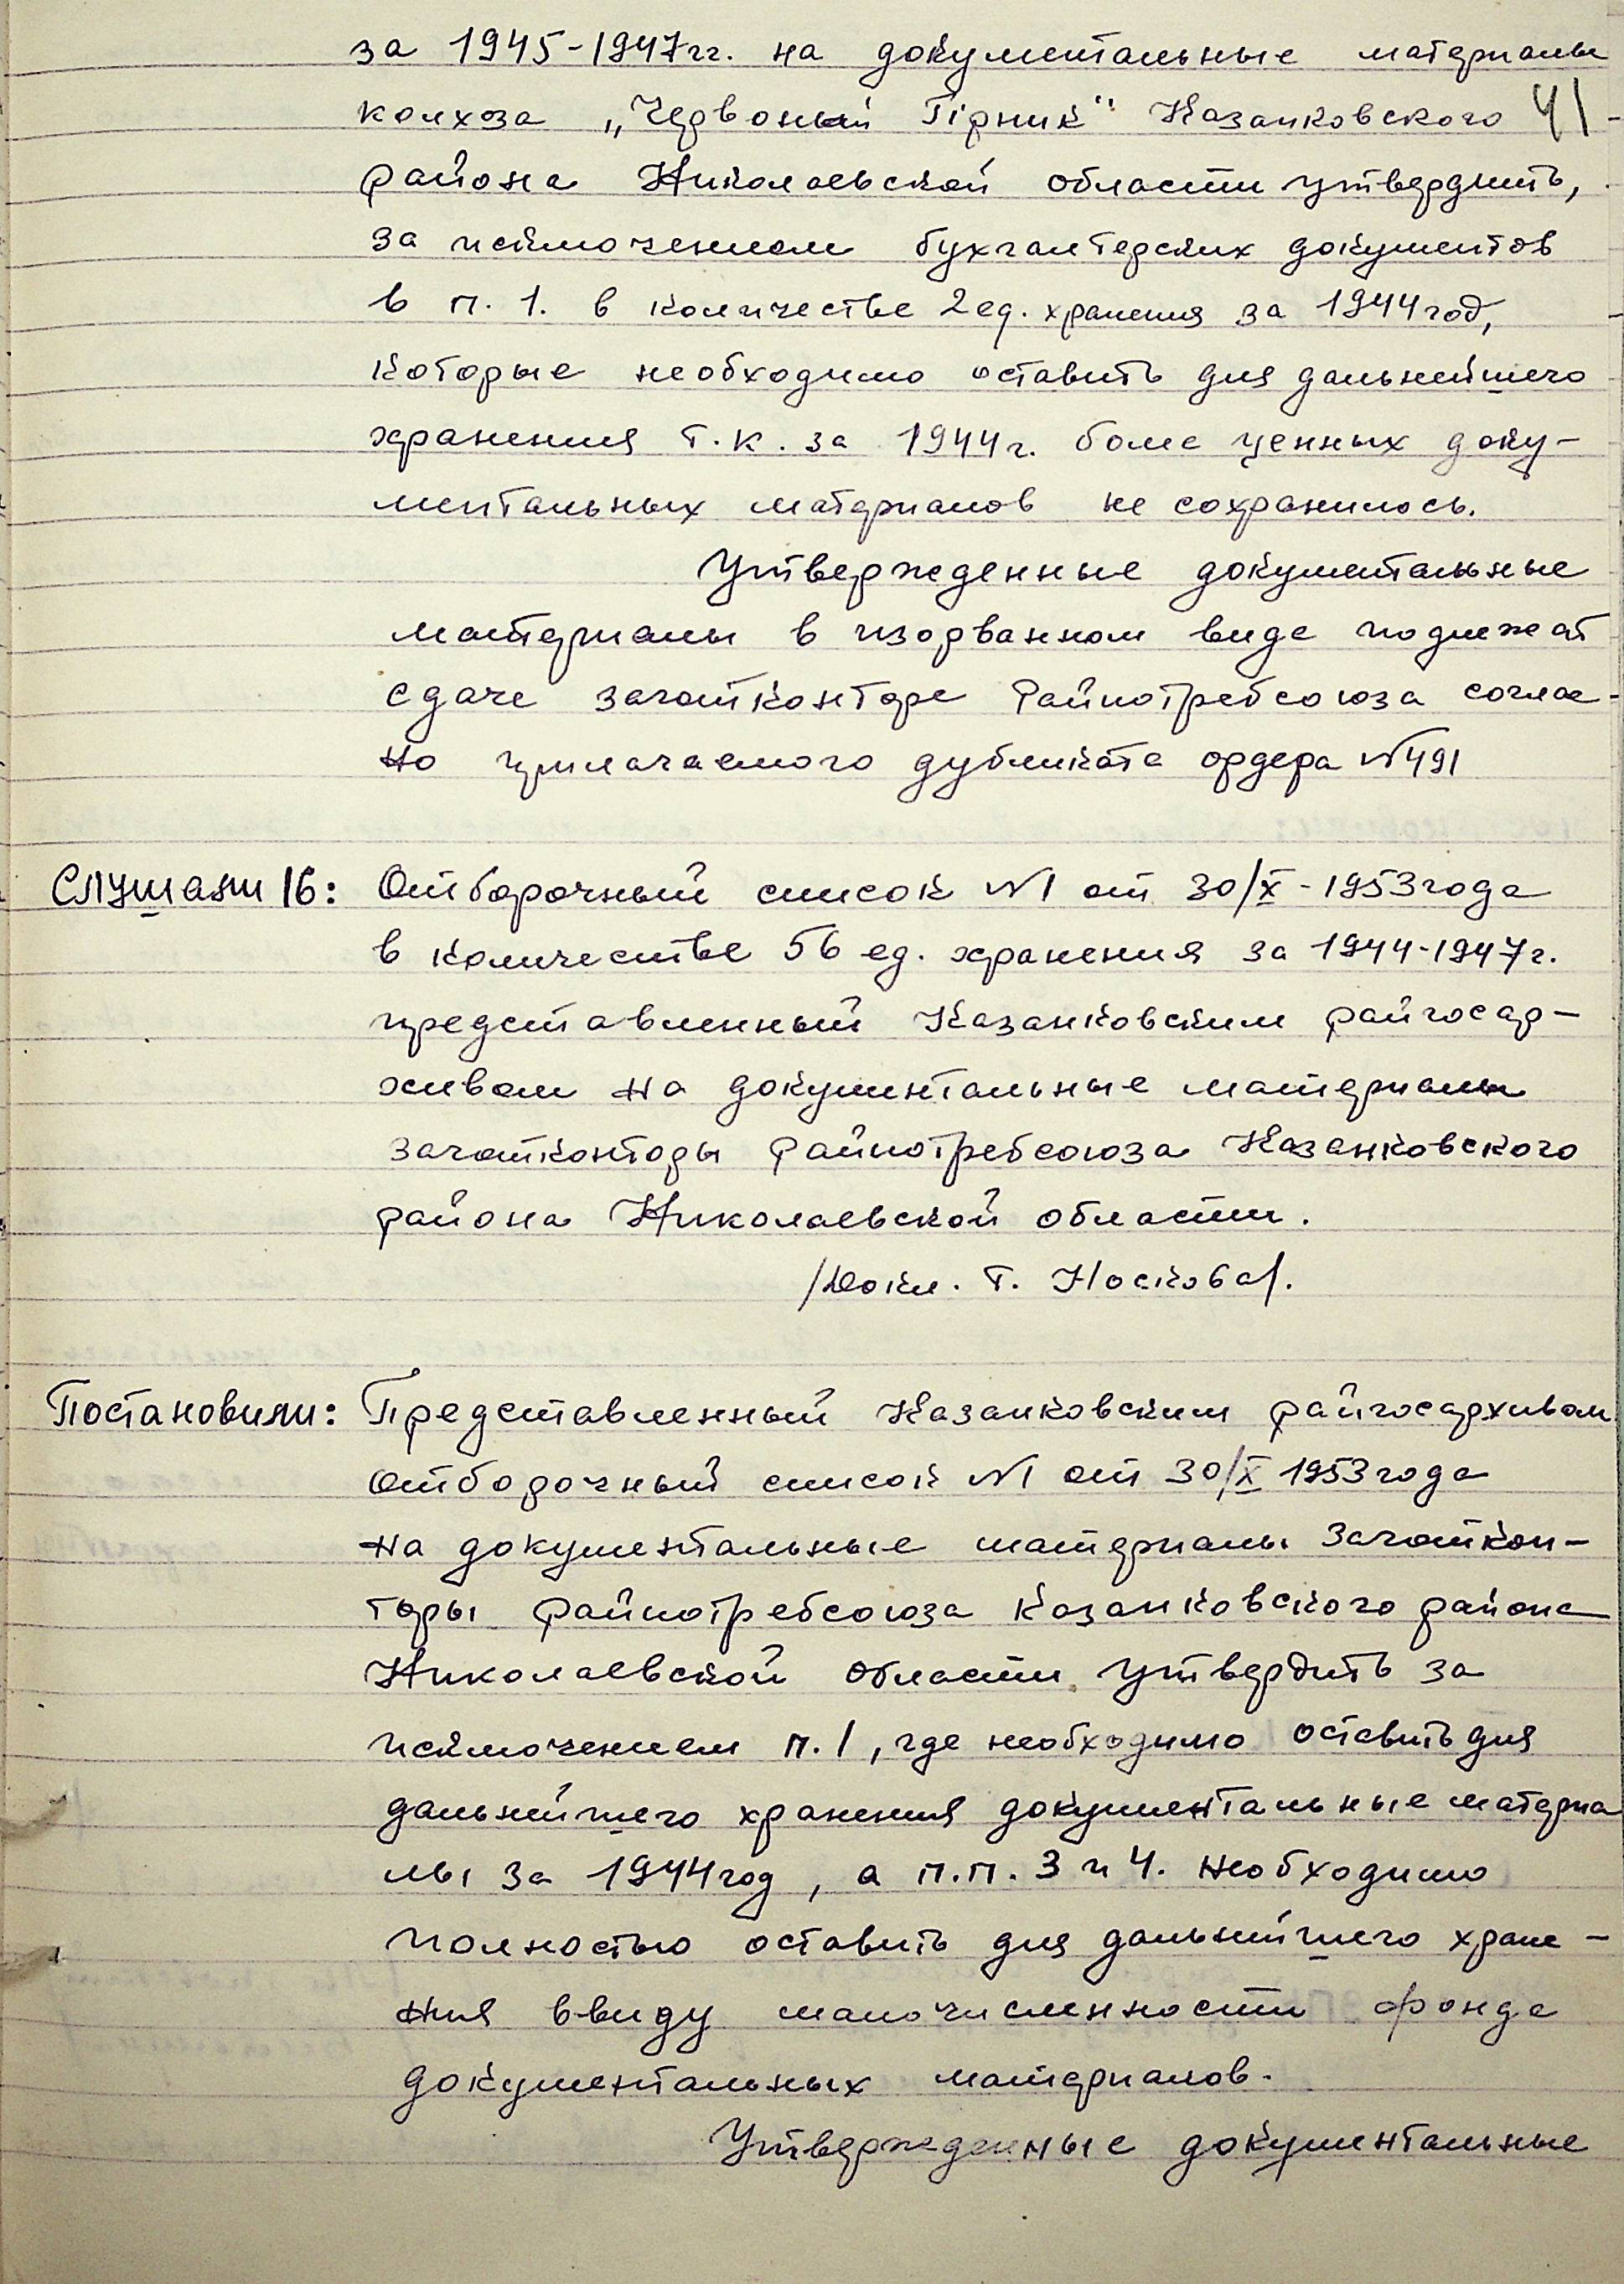 за 1945-1947гг. на документальные материалы
колхоза „Червоный Гірник" Казанковского
41
района Николаевской области утвердить,
за исключением бухгалтерских документов
в п. 1. в количестве 2 ед. хранения за 1944 год,
которые необходимо оставить для дальнейшего
хранения т.к. за 1944 г. боле ценных доку-
ментальных материалов не сохранилось.
Утвержденные документальные
материалы в изорванном виде подлежат
сдаче заготконторе Райпотребсоюза соглас-
но прилагаемого дубликата ордера №491
Слушали 16: Отборочный список №1 от 30/X-1953 года
в количестве 56 ед. хранения за 1944-1947 г.
представленный Казанковским райгосар-
хивом на документальные материалы
заготконторы Райпотребсоюза Казанковского
района Николаевской области.
/Докл. т. Носкова/.
Постановили: Представленный Казанковским райгосархивом
отборочный список №1 от 30/X 1953 года
на документальные материалы Заготкон-
торы Райпотребсоюза Казанковского района
Николаевской области утвердить за
исключением п. 1, где необходимо оставить для
дальнейшего хранения документальные материа
лы за 1944 год, а п.п. 3 и 4. необходимо
полностью оставить для дальнейшего хране-
ния ввиду малочисленности фонда
документальных материалов.
Утвержденные документальные